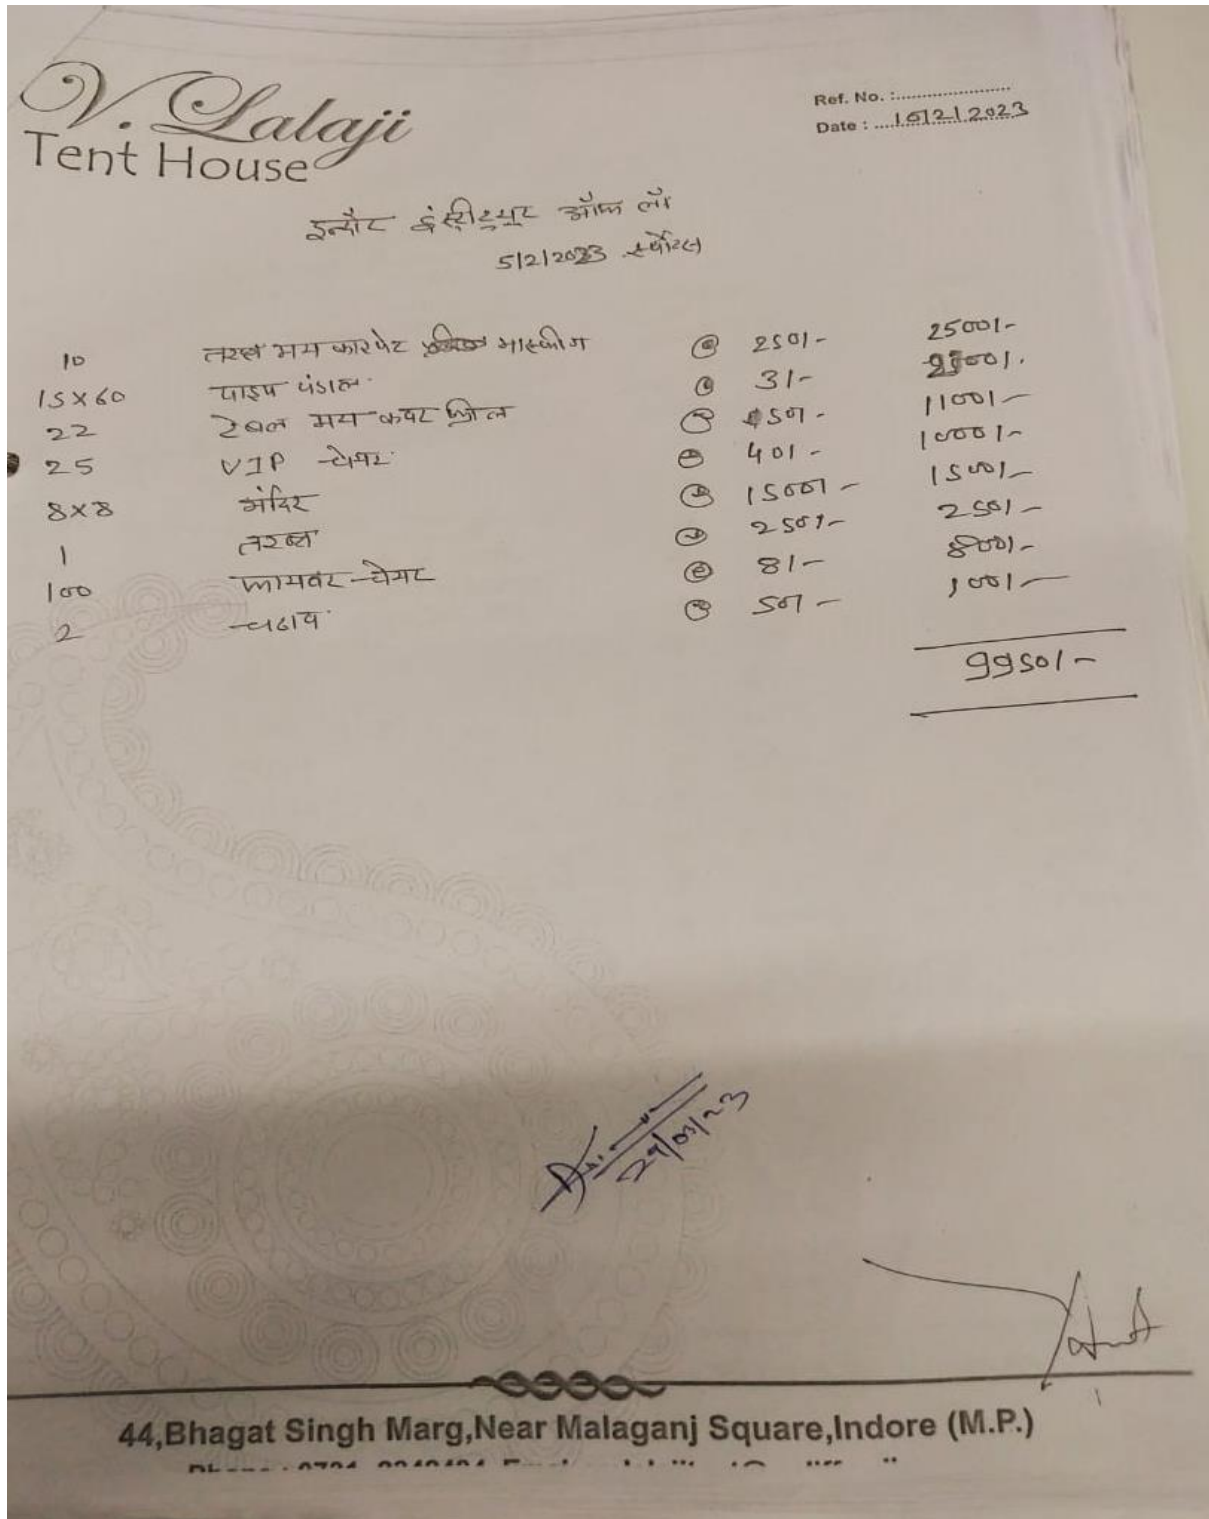 V. Lalaji
Tent House
Ref. No. :........................
Date : ....10/2/2023
इन्दौर इंस्टीट्यूट ऑफ लॉ
5/2/2023 स्पोर्टस
10 तख्त मय कारपेट मास्कींग @ 250/- 2500/-
15x60 पाइप पंडाल @ 3/-
22 टेबल मय कवर फ्रील @ 50/- 1100/-
25 VIP चेयर @ 40/- 1000/-
8x8 मंदिर @ 1500/- 1500/-
1 तख्त @ 250/- 250/-
100 फायबर चेयर @ 8/- 800/-
2 चढाव @ 50/- 100/-
9950/-
29/03/23
44,Bhagat Singh Marg,Near Malaganj Square,Indore (M.P.)